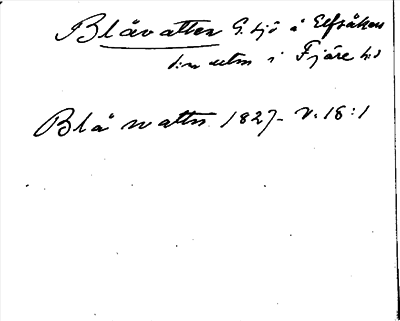 Blåvatten G. sjö å Elfsåkers
utm i Fjäre hd
Blå watten 1827 - V. 18:1